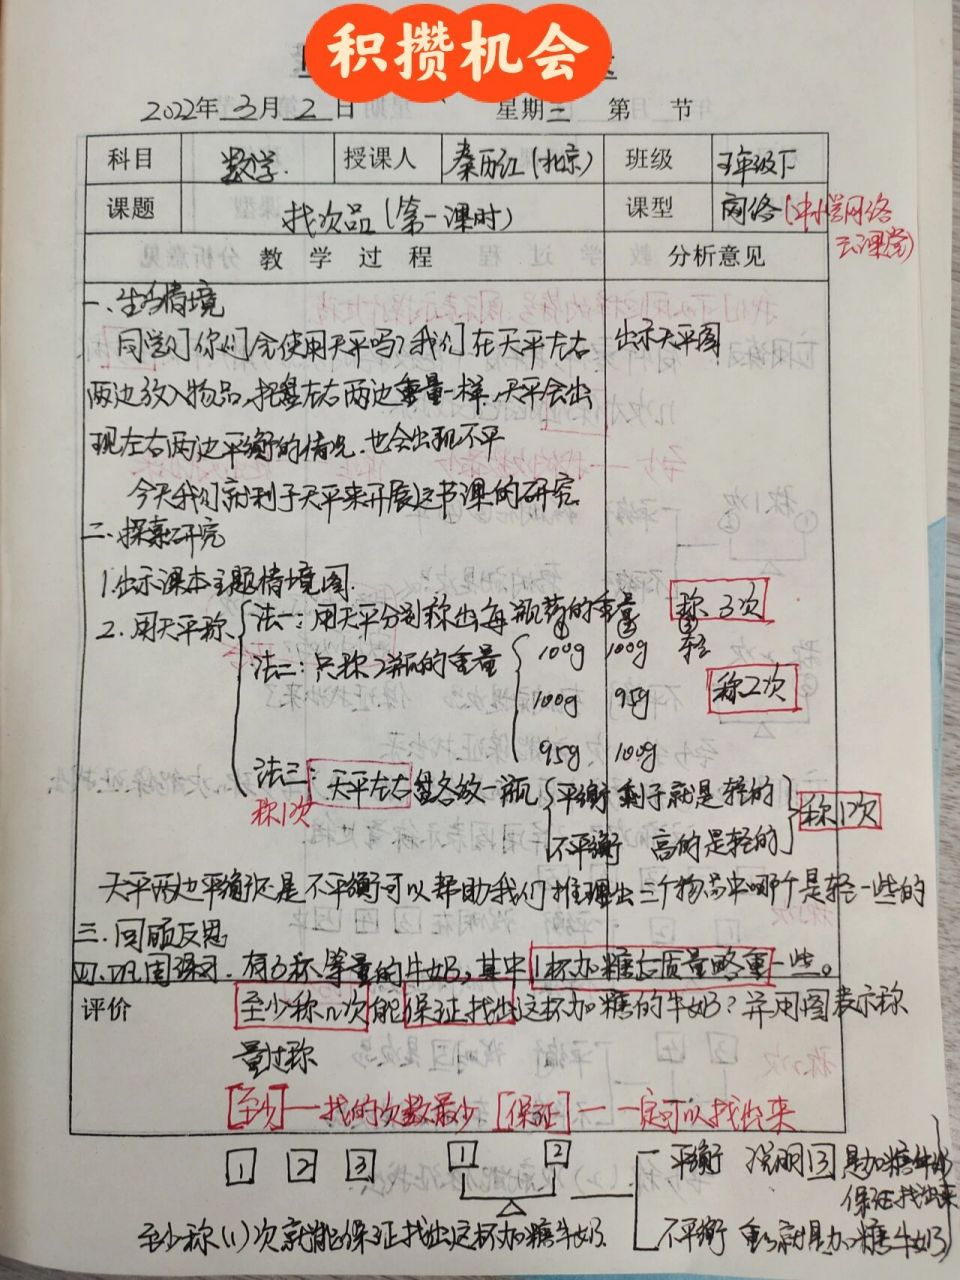 积攒机会
2022年 3月 2日 星期三 第 节
科目 数学. 授课人 秦历红(北京) 班级 五年级下
课题 找次品(第一课时) 课型 网络(中小学网络云课堂)
教 学 过 程 分析意见
一、生活情境
同学们你们会使用天平吗?我们在天平左右 出示天平图
两边放入物品,托盘左右两边重量一样,天平会出
现左右两边平衡的情况.也会出现不平
今天我们就利于天平来开展这节课的研究
二、探索研究
1.出示课本主题情境图.
2.用天平称 法一:用天平分别称出每瓶药的重量 称3次
① ② ③
法二:只称2瓶的重量 100g 100g 轻
100g 95g 称2次
95g 100g
法三:天平左右盘各放一瓶 平衡 剩于就是轻的 称1次
称1次 不平衡 高的是轻的
天平两边平衡还是不平衡可以帮助我们推理出三个物品中哪个是轻一些的
三、回顾反思
四、巩固练习.有3杯等量的牛奶,其中1杯加糖后质量略重一些。
评价 至少称几次能保证找出这杯加糖的牛奶?并用图表示称
量过称
至少—找的次数最少 [保证]— 一定可以找出来
1 2 3 1 2 平衡 说明3是加糖牛奶
保证找出来
至少称(1)次就能保证找出这杯加糖牛奶. 不平衡 重的就是加糖牛奶